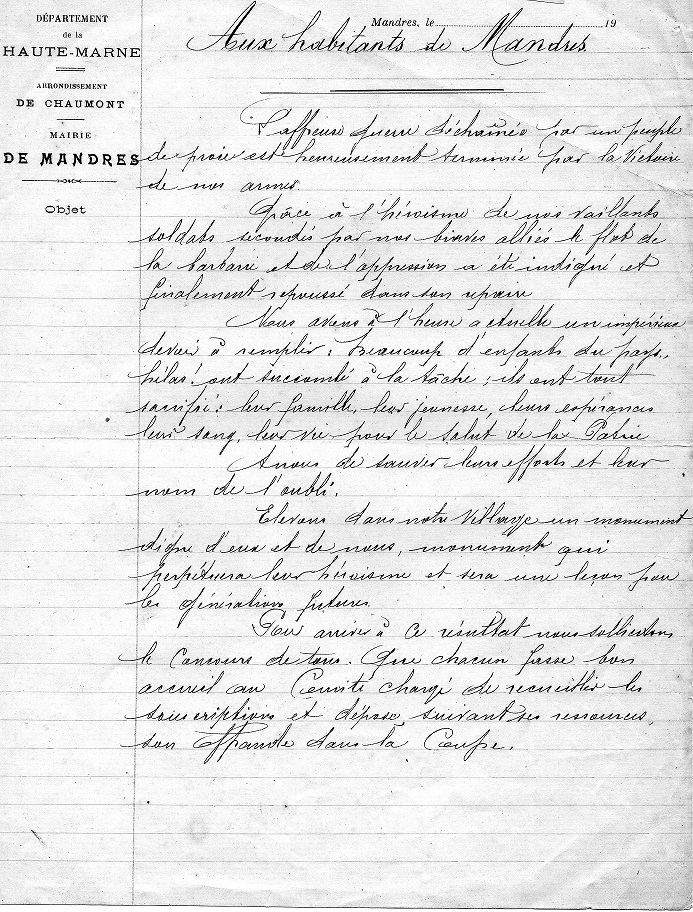 DÉPARTEMENT
de la
HAUTE-MARNE
ARRONDISSEMENT
DE CHAUMONT
MAIRIE
DE MANDRES
Objet
Mandres, le 19
Aux habitants de Mandres
L'affreuse guerre déchaînée par un peuple
de proie est heureusement terminée par la Victoire
de nos armes.
Grâce à l'héroïsme de nos vaillants
soldats secondés par nos braves alliés le flot de
la barbarie et de l'oppression a été endigué et
finalement repoussé dans son repaire
Nous avons à l'heure actuelle un impérieux
devoir à remplir : Beaucoup d'enfants du pays,
hélas! ont succombé à la tâche ; ils ont tout
sacrifié : leur famille, leur jeunesse, leurs espérances
leur sang, leur vie pour le salut de la Patrie
A nous de sauver leurs efforts et leur
nom de l'oubli.
Elevons dans notre Village un monument
digne d'eux et de nous, monument qui
perpétuera leur héroïsme et sera une leçon pour
les générations futures
Pour arriver à ce résultat nous sollicitons
le Concours de tous. Que chacun fasse bon
accueil au Comité chargé de recueillir les
souscriptions et dépose, suivant ses ressources,
son Offrande dans la Coupe.